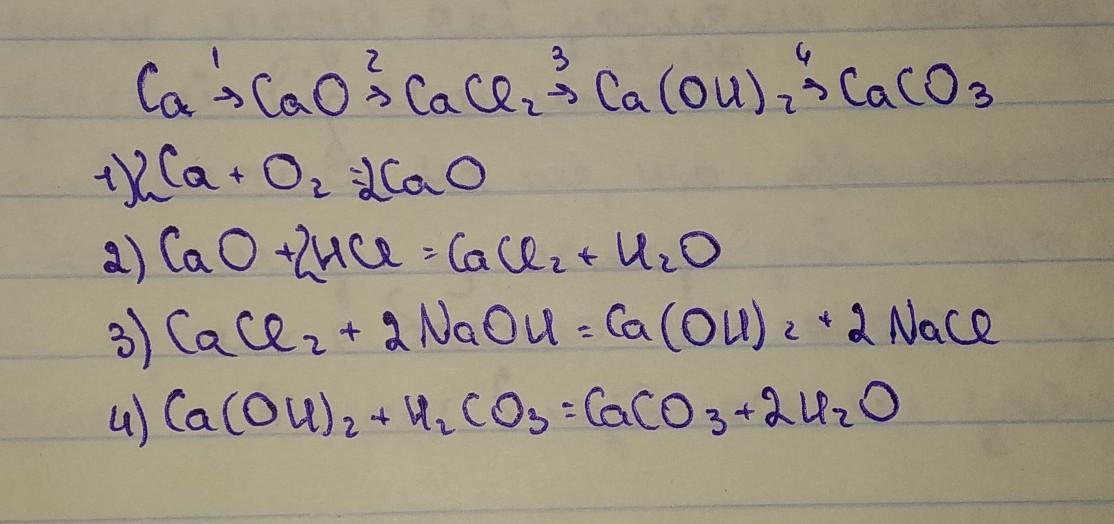 Ca ¹→ CaO ²→ CaCl₂ ³→ Ca(OH)₂ ⁴→ CaCO₃
1) 2Ca + O₂ = 2CaO
2) CaO + 2HCl = CaCl₂ + H₂O
3) CaCl₂ + 2NaOH = Ca(OH)₂ + 2NaCl
4) Ca(OH)₂ + H₂CO₃ = CaCO₃ + 2H₂O